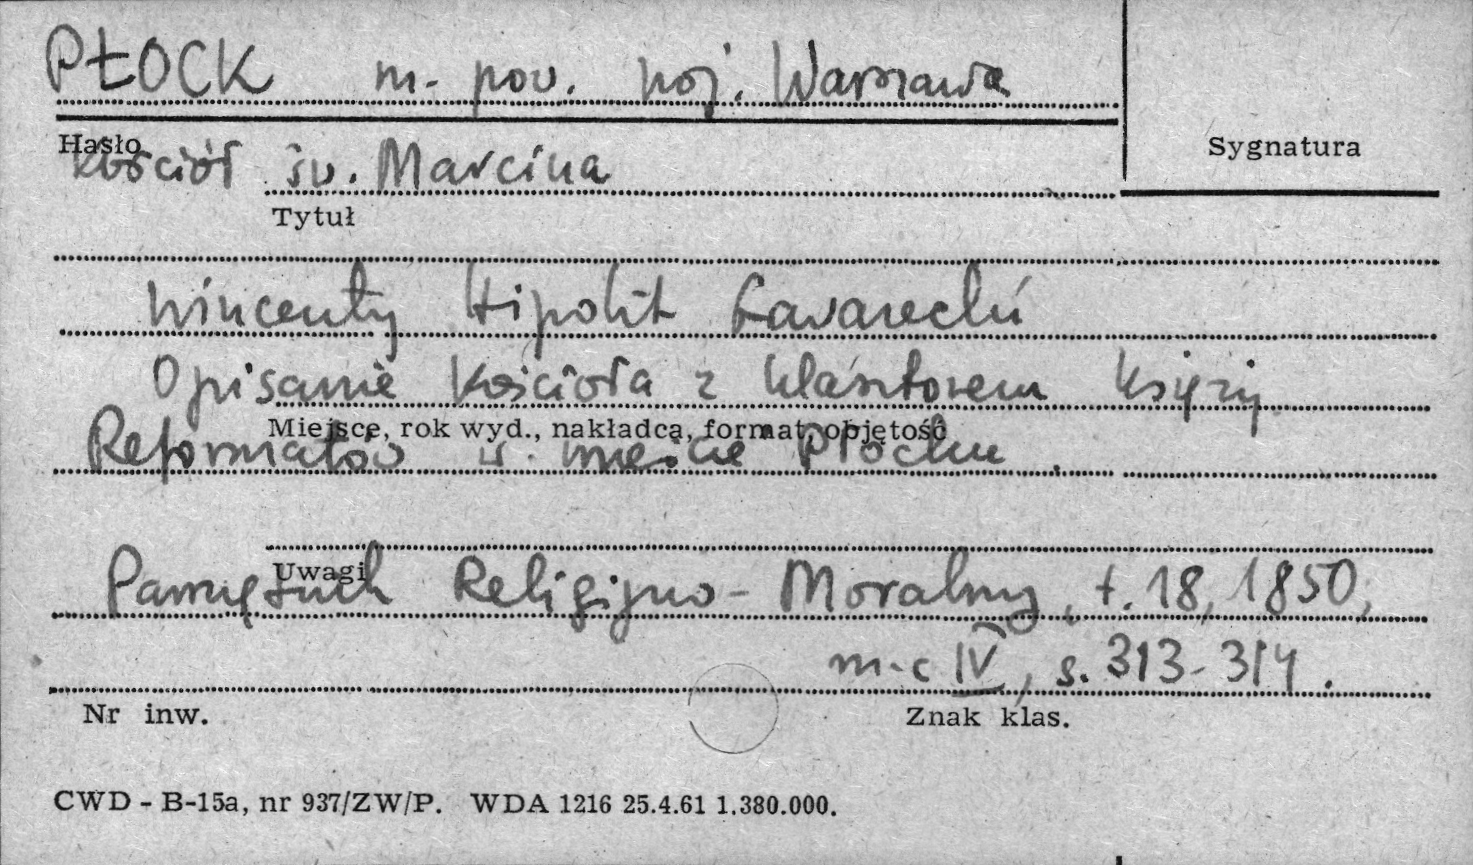 PŁOCK m. pow. woj. Warszawa
Hasło
Sygnatura
Kościół św. Marcina
Tytuł
Wincenty Hipolit Gawarecki
Opisanie kościoła z klasztorem księży
Miejsce, rok wyd., nakładca, format, objętość
Reformatów w mieście Płocku.
Uwagi
Pamiętnik Religijno-Moralny, t. 18, 1850,
m-c IV, s. 313-314.
Nr inw.
Znak klas.
CWD - B-15a, nr 937/ZW/P. WDA 1216 25.4.61 1.380.000.